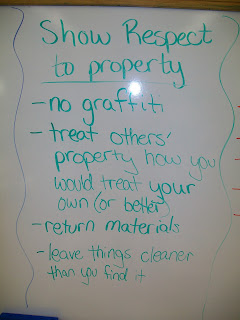 Show Respect
to property
- no graffiti
- treat others'
property how you
would treat your
own (or better)
- return materials
- leave things cleaner
than you find it